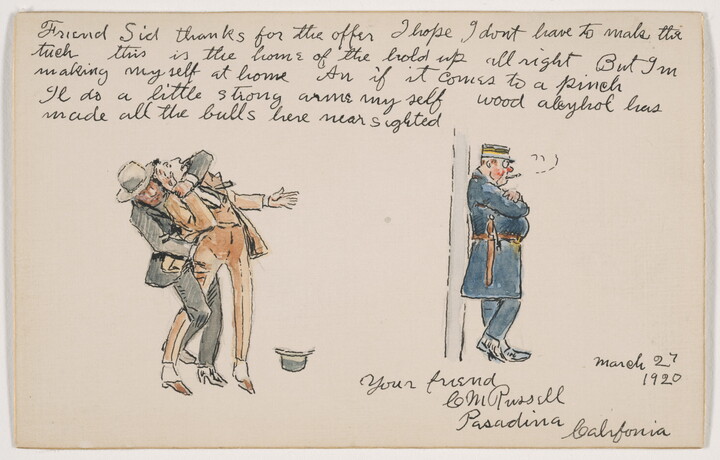 Friend Sid thanks for the offer I hope I dont have to make the
tuch this is the home of the hold up all right But Im
making my self at home An if it comes to a pinch
Il do a little strong arme my self wood alcyhol has
made all the bulls here near sighted
Your friend
CM Russell
Pasadina
Califonia
march 27
1920